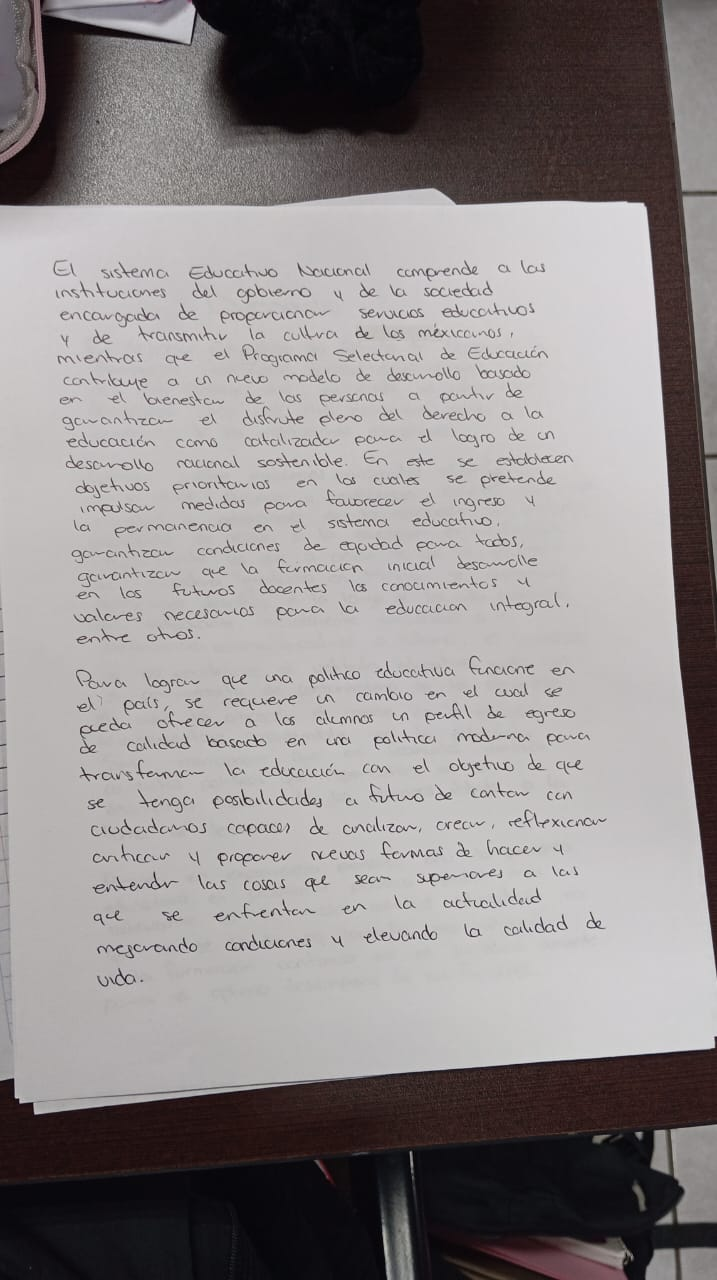 El sistema Educativo Nacional comprende a las
instituciones del gobierno y de la sociedad
encargada de proporcionar servicios educativos
y de transmitir la cultra de los méxicanos,
mientras que el Programa Selectorial de Educación
contribuye a un nuevo modelo de desarrollo basado
en el bienestar de las personas a partir de
garantizar el disfrute pleno del derecho a la
educación como catalizador para el logro de un
desarrollo nacional sostenible. En este se establecen
objetivos prioritarios en los cuales se pretende
impulsar medidas para favorecer el ingreso y
la permanencia en el sistema educativo,
garantizar condiciones de equidad para todos,
garantizar que la formación inicial desarrolle
en los futuros docentes los conocimientos y
valores necesarios para la educación integral,
entre otros.
Para lograr que una politico educativa funcione en
el país, se requiere un cambio en el cual se
pueda ofrecer a los alumnos un perfil de egreso
de calidad basado en una politica moderna para
transformar la educación con el objetivo de que
se tenga posibilidades a futuro de contar con
ciudadanos capaces de analizar, crear, reflexionar
criticar y proponer nuevas formas de hacer y
entendr las cosas que sean superiores a las
que se enfrentan en la actualidad
mejorando condiciones y elevando la calidad de
vida.